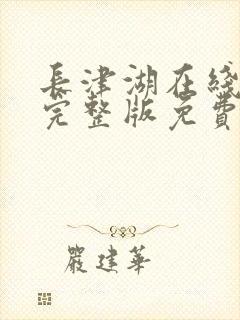 長津湖在綫
完整版免費
嚴建華